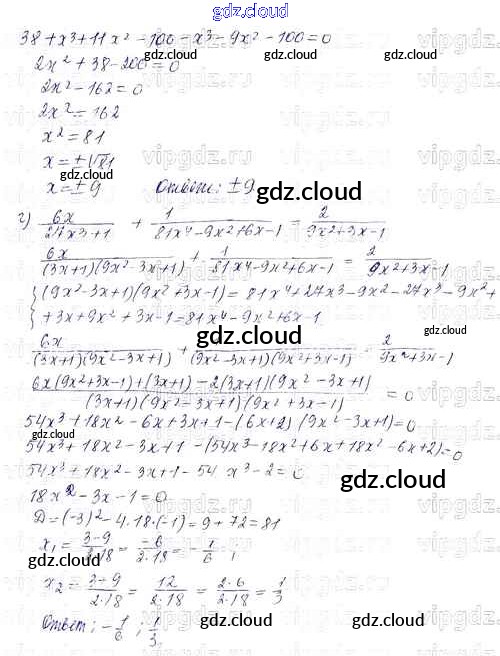 gdz.cloud
38+x³+11x²-100-x³-9x²-100=0
2x²+38-200=0
2x²-162=0
2x²=162
x²=81
x=±√81
x=±9 Ответ: ±9
г) 6x/(27x³+1) + 1/(81x⁴-9x²+6x-1) = 2/(9x²+3x-1)
6x/((3x+1)(9x²-3x+1)) + 1/(81x⁴-9x²+6x-1) = 2/(9x²+3x-1)
{(9x²-3x+1)(9x²+3x-1)=81x⁴+27x³-9x²-27x³-9x²+
+3x+9x²+3x-1=81x⁴-9x²+6x-1
6x/((3x+1)(9x²-3x+1)) + 1/((9x²-3x+1)(9x²+3x-1)) - 2/(9x²+3x-1)
(6x(9x²+3x-1)+(3x+1)-2(3x+1)(9x²-3x+1))/((3x+1)(9x²-3x+1)(9x²+3x-1)) = 0
54x³+18x²-6x+3x+1-(6x+2)(9x²-3x+1)=0
54x³+18x²-3x+1-(54x³-18x²+6x+18x²-6x+2)=0
54x³+18x²-3x+1-54x³-2=0
18x²-3x-1=0
D=(-3)²-4.18.(-1)=9+72=81
x₁=(3-9)/(2.18)=-6/(2.18)=-1/6;
x₂=(3+9)/(2.18)=12/(2.18)=2.6/(2.18)=1/3
Ответ: -1/6; 1/3
gdz.cloud